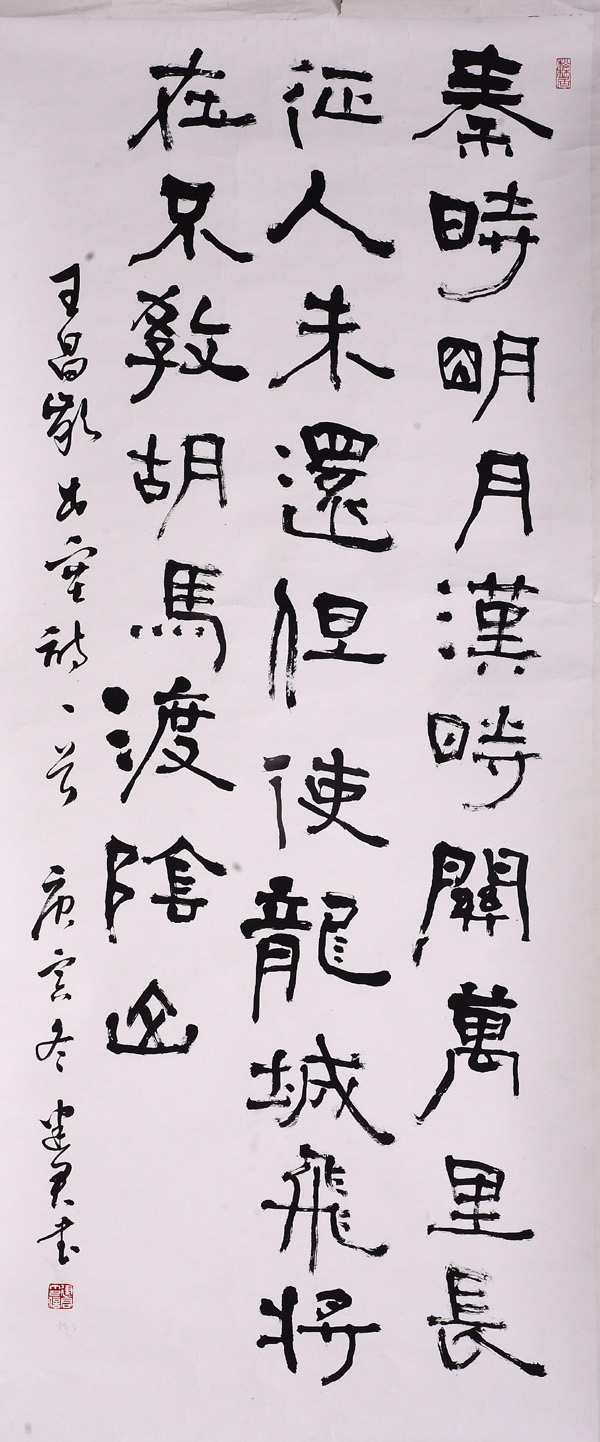 秦時明月漢時關萬里長
征人未還但使龍城飛將
在不教胡馬渡陰山
王昌齡出塞詩一首 庚寅冬 建君书